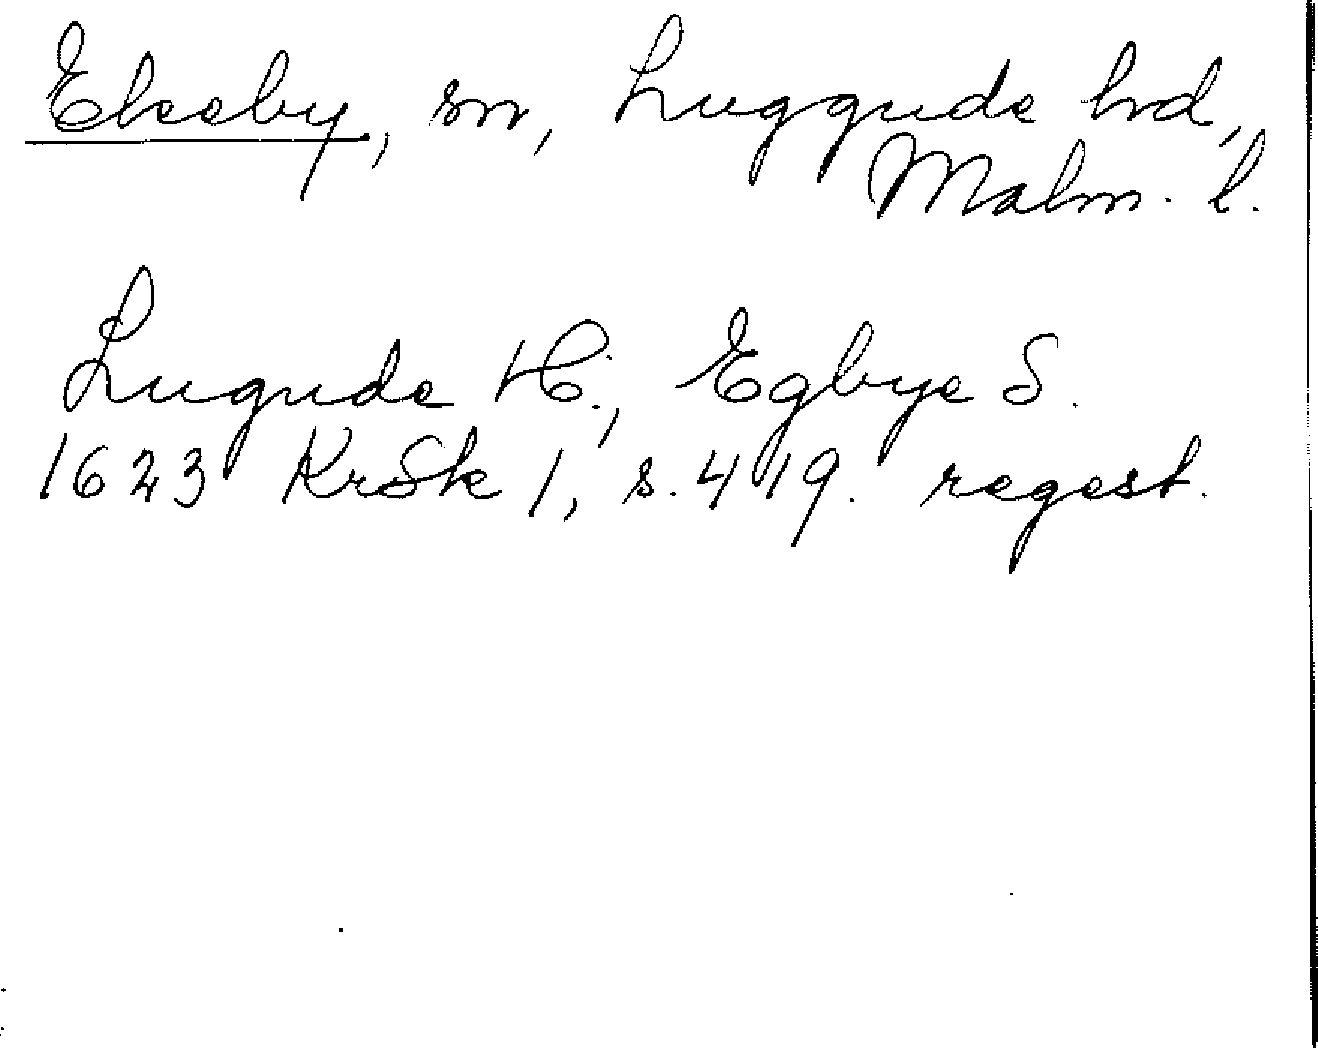 Ekeby, sn, Luggude hrd,
Malm. l.
Lugude H., Egbye S.
1623 KrSk 1, s. 419. regest.